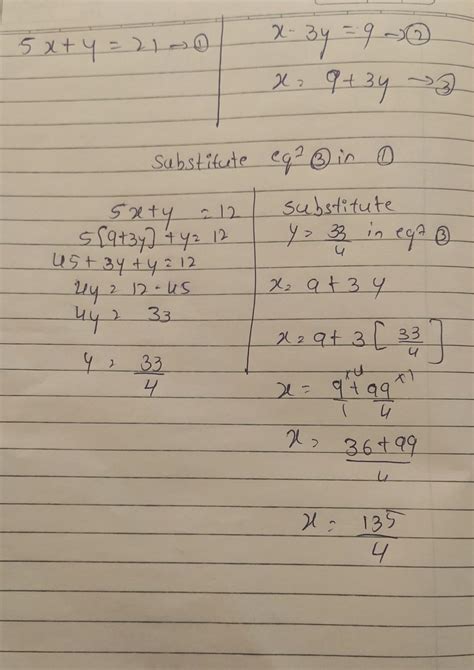 5x+y=21→①
x-3y=9→②
x= 9+3y→③
Substitute eqⁿ ③ in ①
5x+y = 12
5[9+3y]+y=12
45+3y+y=12
4y= 12-45
4y= 33
y= 33/4
Substitute
y= 33/4 in eqⁿ ③
x= 9+3y
x= 9+3[33/4]
x= 9/1 ×4 + 99/4 ×1
x= 36+99/4
x= 135/4